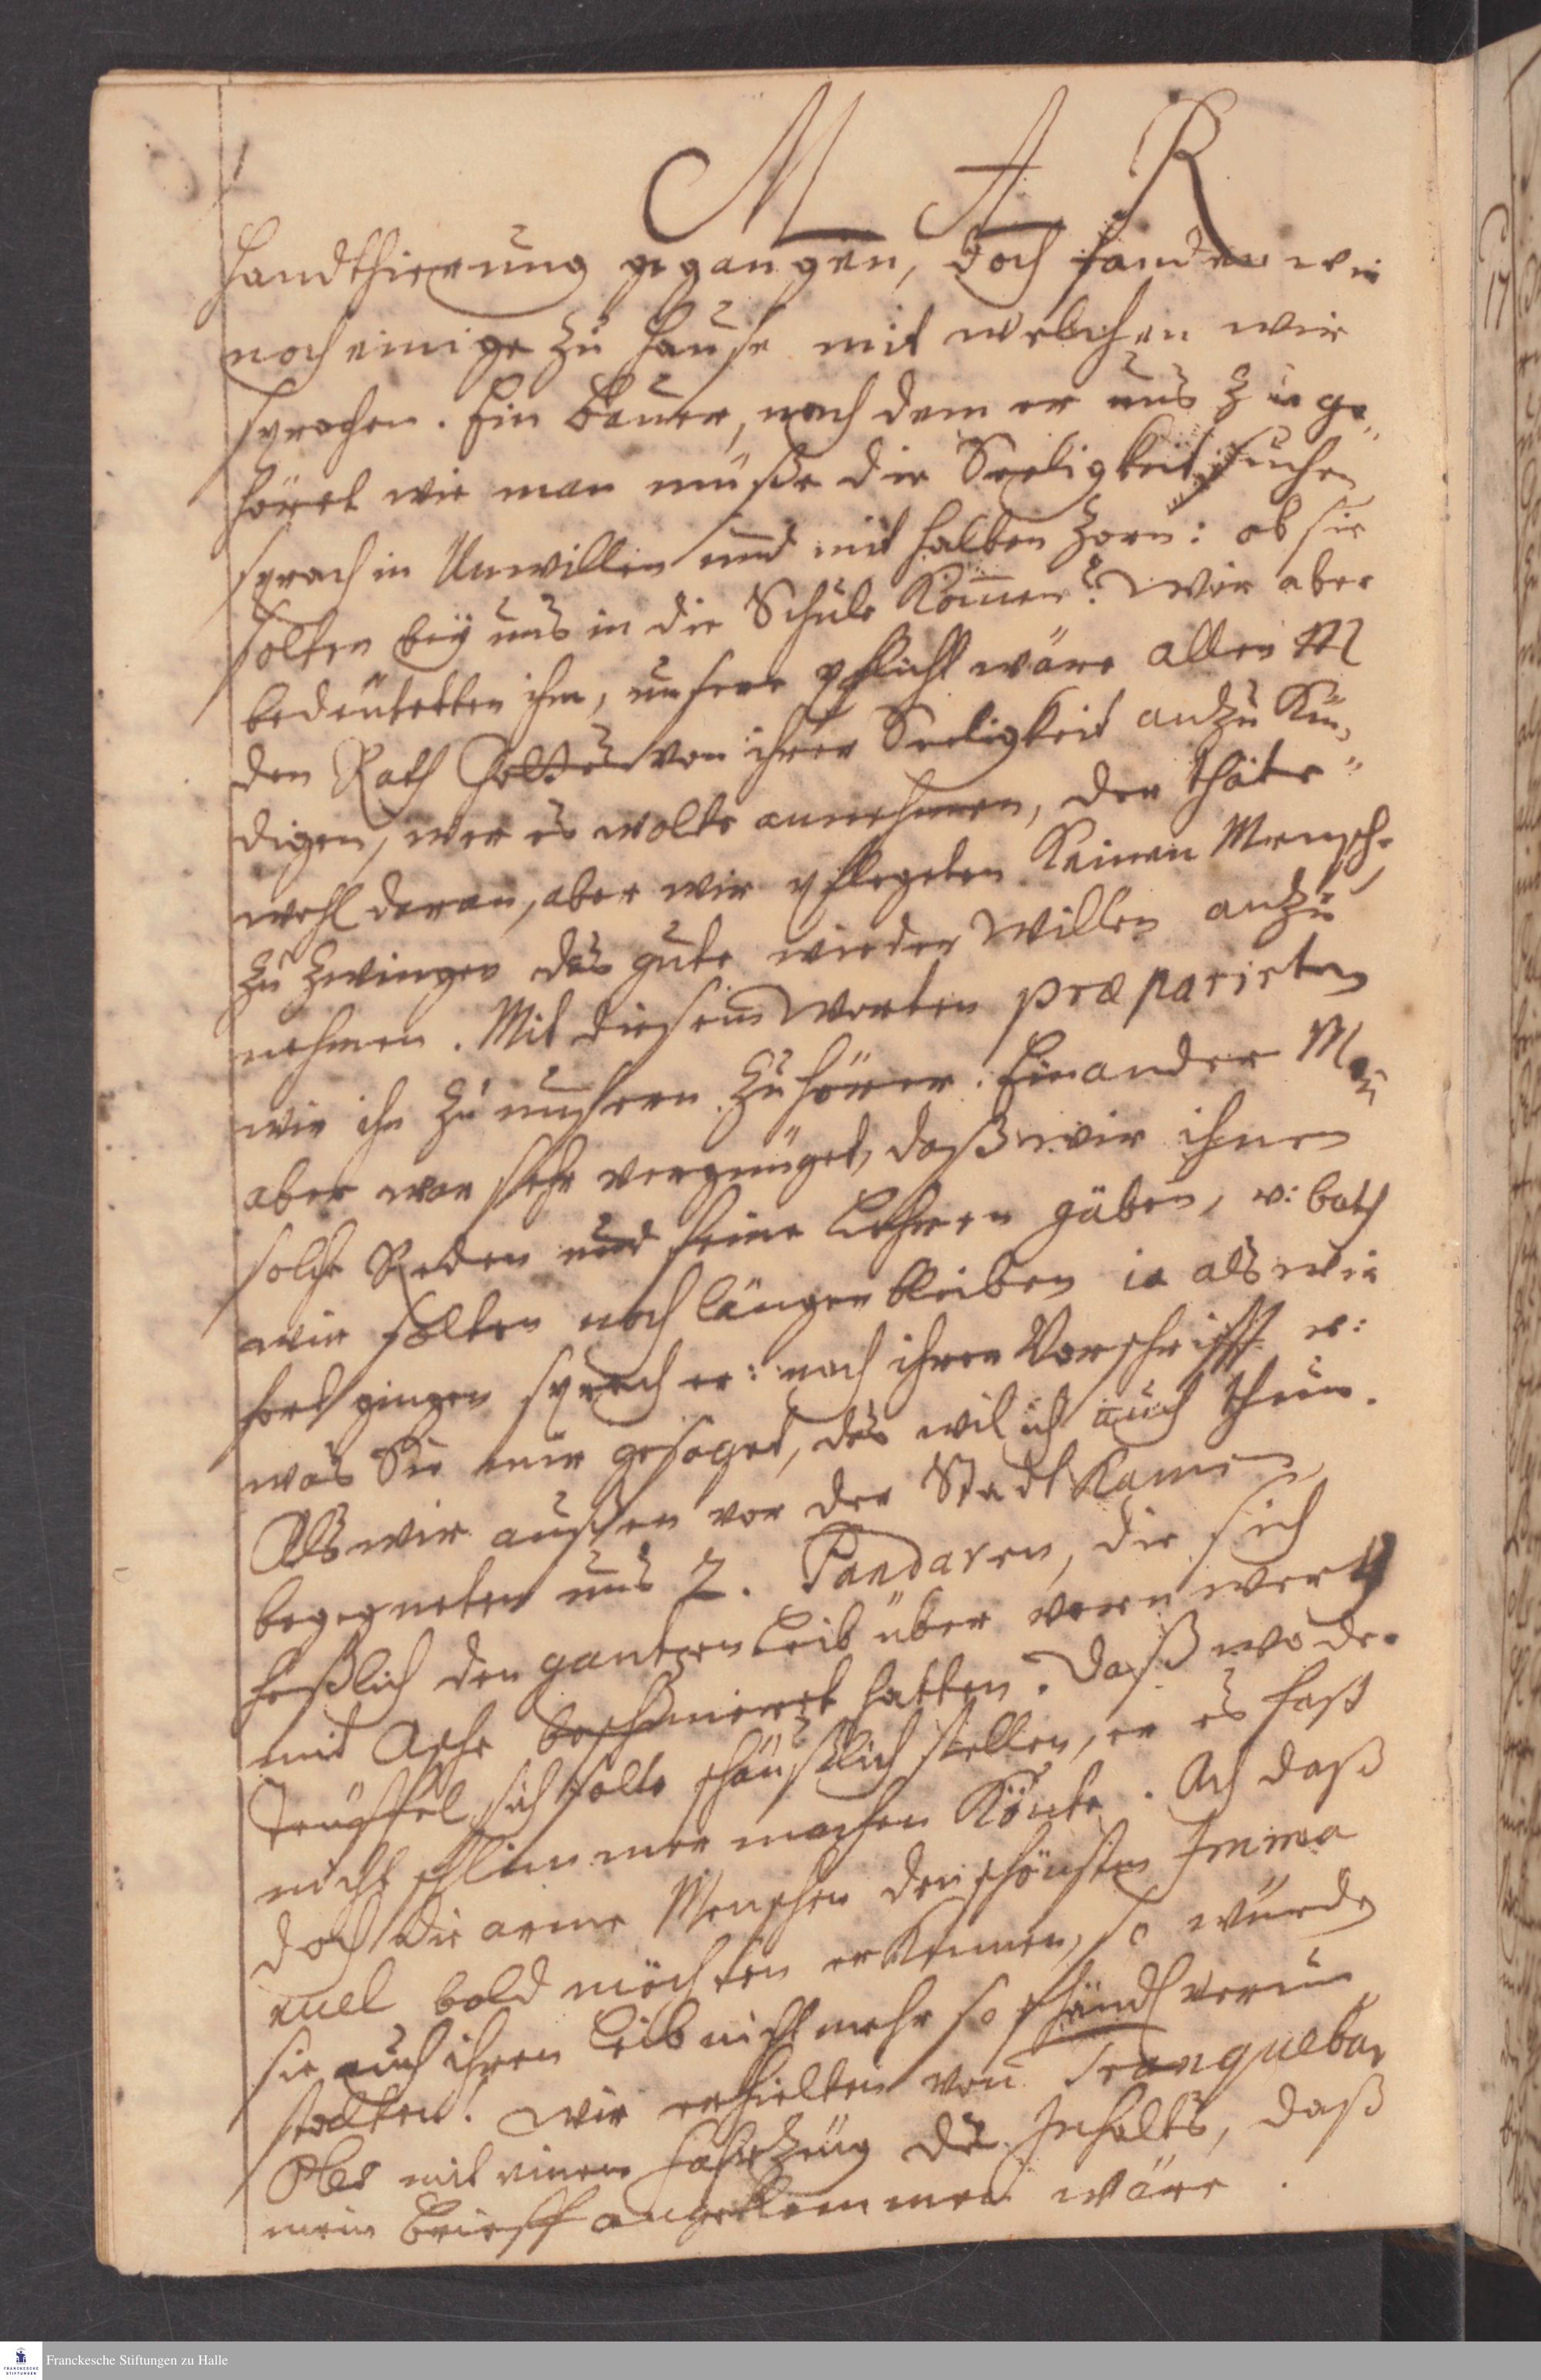 M A R
Handthierung gegangen, doch fanden wir
noch einige zu Hause mit welchen wir
sprachen. Ein Bauer, nach dem er uns zu ge„
höret wie man müße die Seeligkeit suchen
sprach in Unwillen und mit halben Zorn: ob sie
solten bey uns in die Schule Kom̅en? Wir aber
bedeuteten ihm, unsere pflicht wäre allen M
den Rath Gottes von ihrer Seeligkeit anzu Kün„
digen, wer es wolte annehmen, der thäte
wohl daran, aber wir pflegeten Keinen Mensch.
zu zwingen das gute wieder Willen anzu
nehmen. Mit diesem Worten præparirten
wir ihn zu unsern Zuhörer. Ein ander
aber war sehr vergnüget, daß wir ihnen
solche Reden und feine Lehren gäben, u: bath
wir solten noch länger bleiben ia als wir
fort gingen sprach er: nach ihrer Vorschrifft u:
was Sie mir gesaget, das wil ich auch thun.
Als wir außen vor der Stadt Kamen
begegneten uns 2. Pandaren, die sich
heßlich den gantzen Leib über vornwerts
mit Asche beschmieret hatten. Daß wo der
Teuffel sich solte scheußlich stellen, er es fast
nicht schlimmer machen Könte. Ach daß
doch die arme Menschen den schönsten Imma
nuel bald möchten erKennen, so würden
sie auch ihren Leib nicht mehr so schändl verun
stalten! Wir erhielten von Tranquebar
Oles mit einem Fahrzeug des Inhalts, daß
mein Brieff angekommen wäre.
Franckesche Stiftungen zu Halle
FRANCKESCHE
STIFTUNGEN